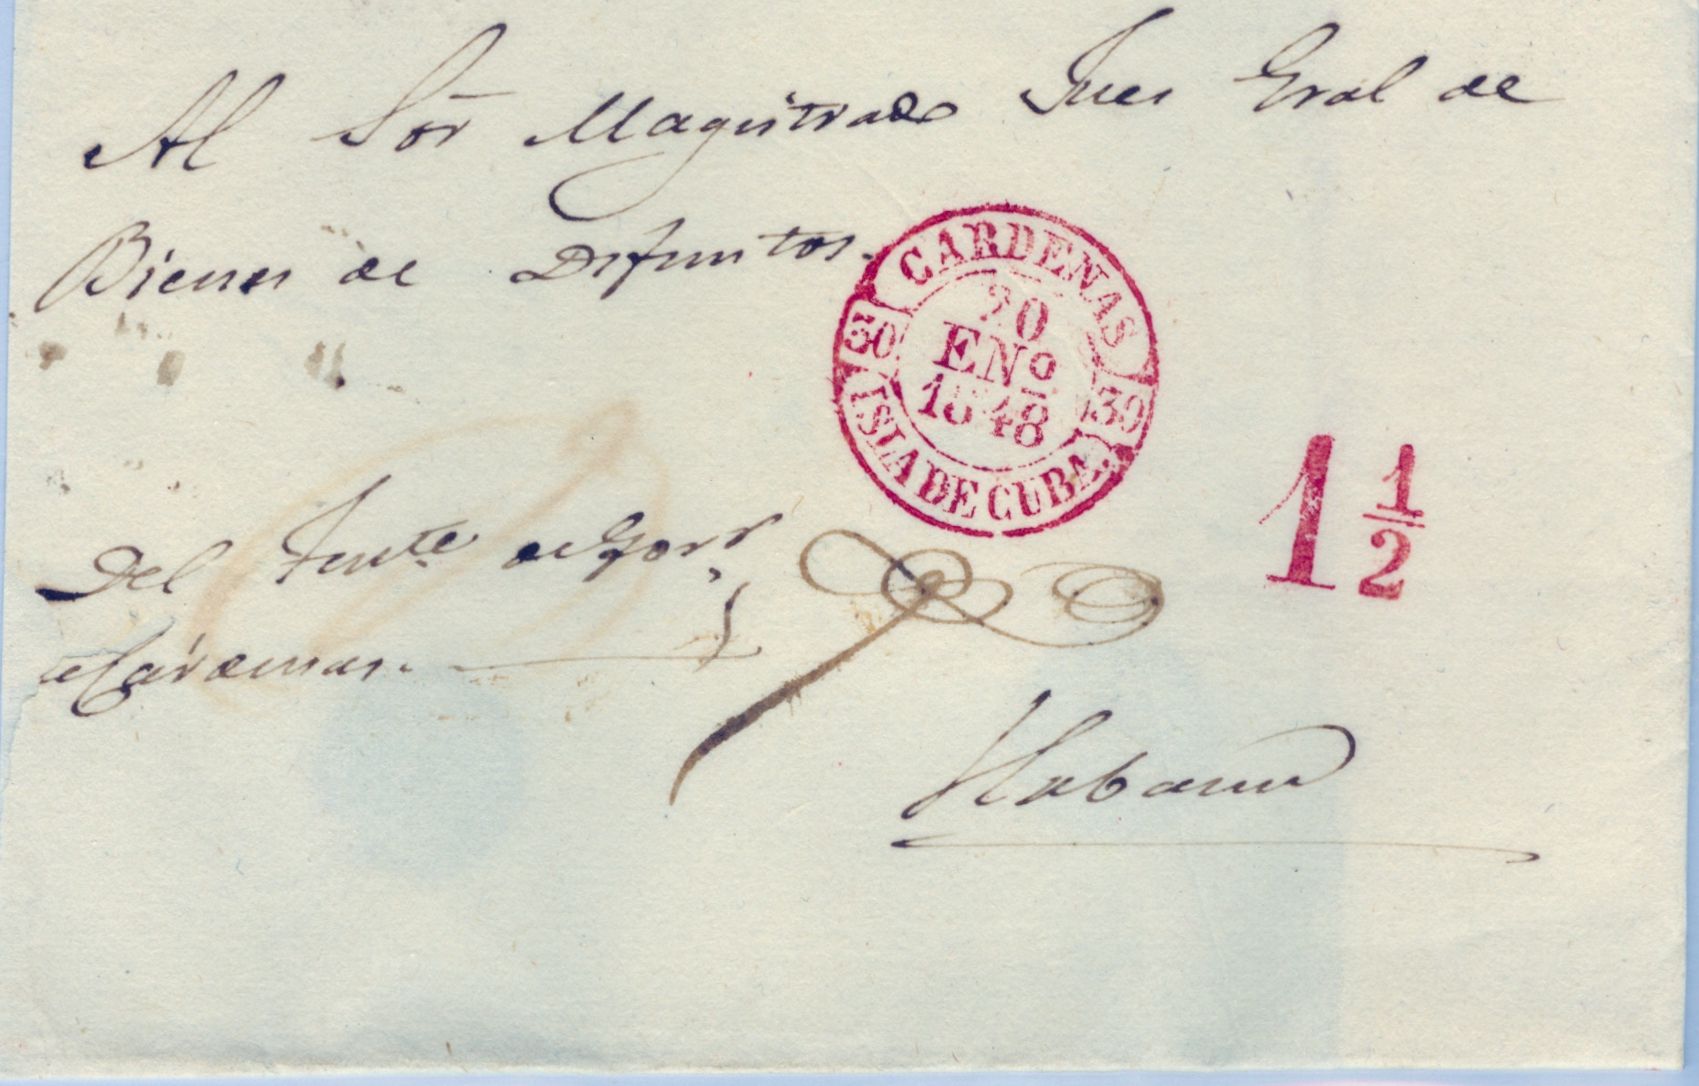 Al Sor Magistrado Jues Gral de
Bienes de Difuntos.
CARDENAS
30
20
ENº
1848
39
ISLA DE CUBA.
1 1/2
Del Tente de Gorr
de Cárdenas.
Habana